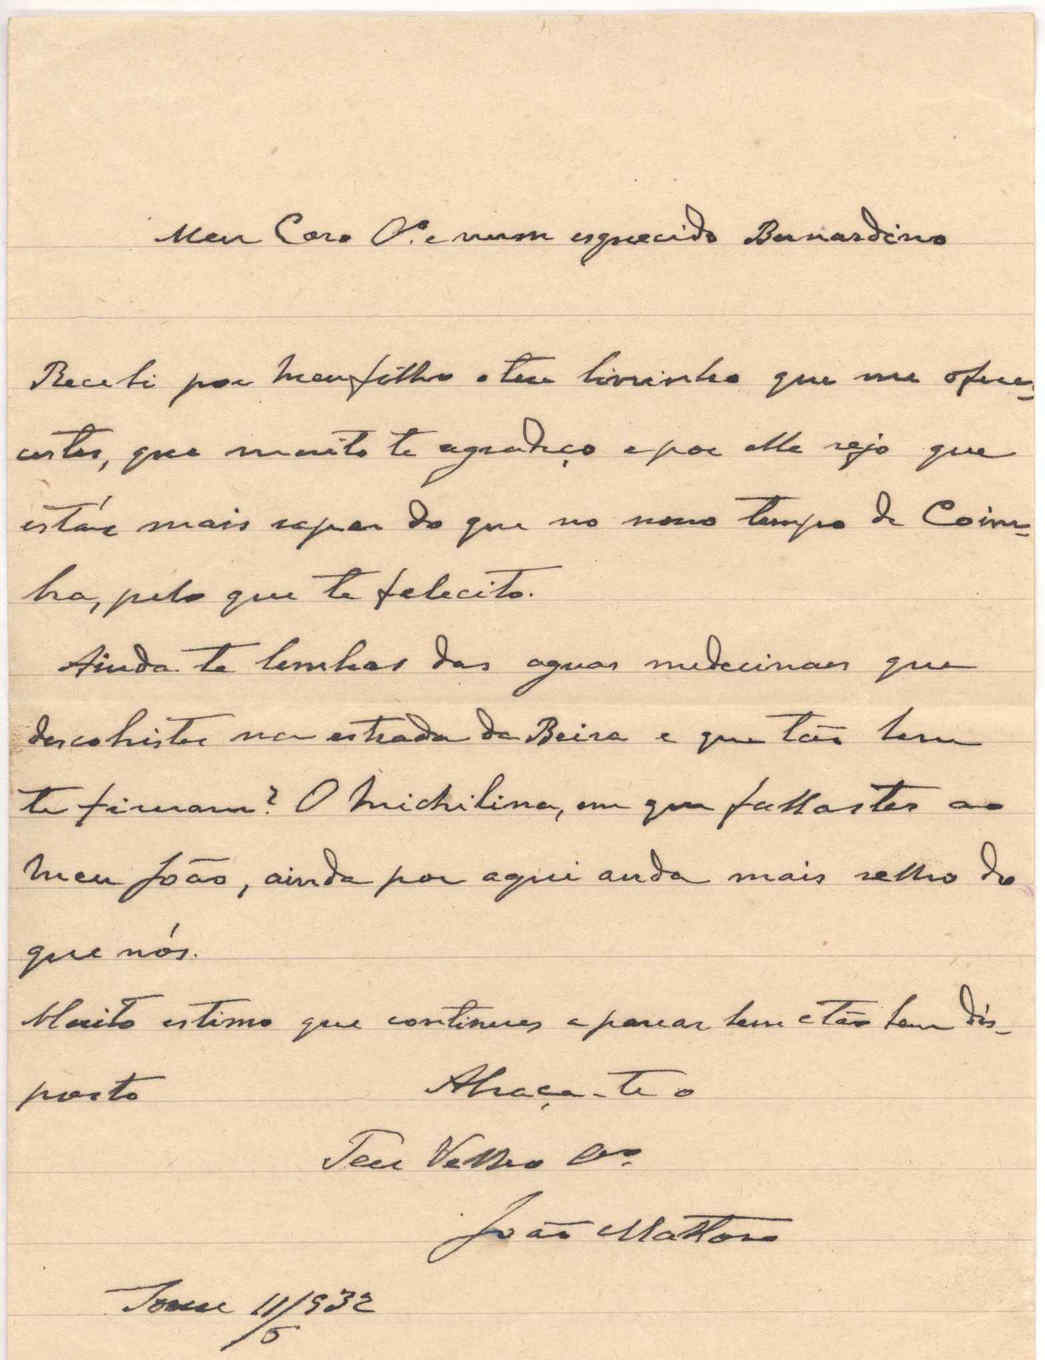 Meu Caro Am.º e nunca esquecido Bernardino
Recebi por meu filho o teu livrinho que me ofere-
cestes, que muito te agradeço e por elle vejo que
estás mais rapaz do que no nosso tempo de Coim-
bra, pelo que te felecito.
Ainda te lembras das aguas medecinaes que
descobristes na estrada da Beira e que tão bem
te fizeram? O Michilina, em que fallastes ao
meu João, ainda por aqui anda mais velho do
que nós.
Muito estimo que continues a passar bem e tão bem dis-
posto Abraça-te o
Teu Velho Am.º
João Mattoso
11/5/932